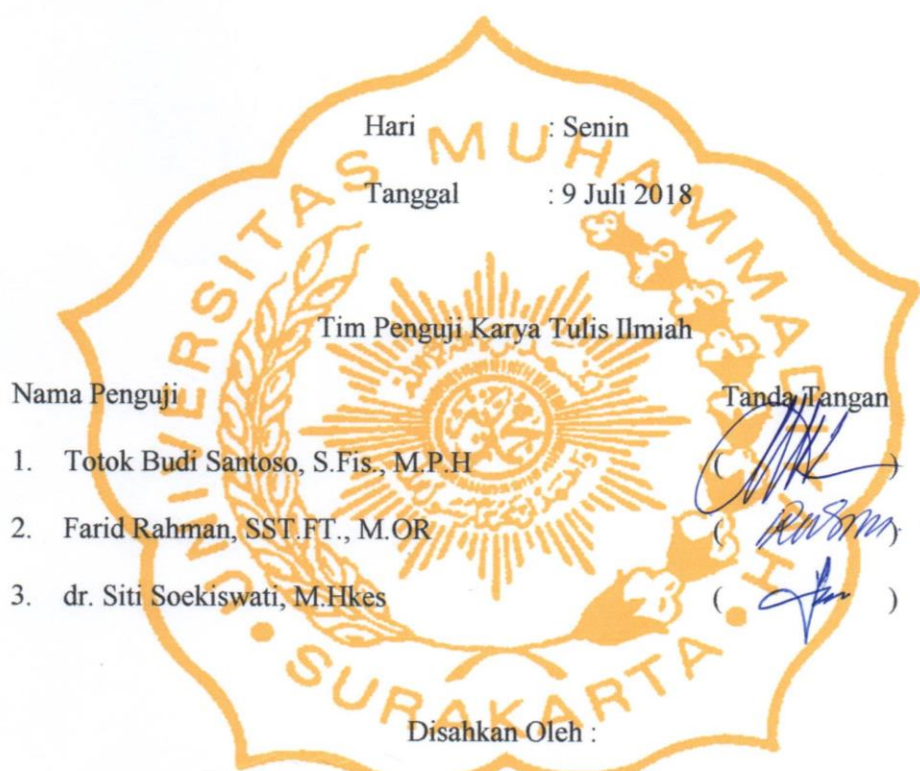 Hari : Senin
Tanggal : 9 Juli 2018
Tim Penguji Karya Tulis Ilmiah
Nama Penguji Tanda Tangan
1. Totok Budi Santoso, S.Fis., M.P.H ( )
2. Farid Rahman, SST.FT., M.OR ( )
3. dr. Siti Soekiswati, M.Hkes ( )
Disahkan Oleh :
UNIVERSITAS MUHAMMADIYAH
SURAKARTA